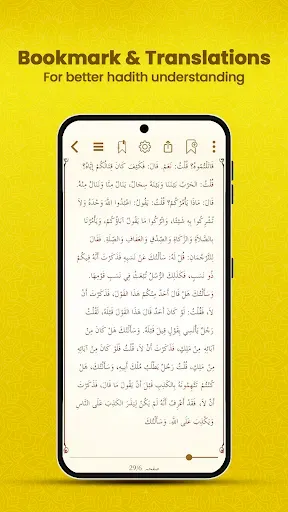 Bookmark & Translations
For better hadith understanding
قَاتَلْتُمُوهُ؟ قُلْتُ: نَعَمْ. قَالَ: فَكَيْفَ كَانَ قِتَالُكُمْ إِيَّاهُ؟
قُلْتُ: الحَرْبُ بَيْنَنَا وَبَيْنَهُ سِجَالٌ، يَنَالُ مِنَّا وَنَنَالُ مِنْهُ.
قَالَ: مَاذَا يَأْمُرُكُمْ؟ قُلْتُ: يَقُولُ: اعْبُدُوا اللَّهَ وَحْدَهُ وَلاَ
تُشْرِكُوا بِهِ شَيْئًا، وَاتْرُكُوا مَا يَقُولُ آبَاؤُكُمْ، وَيَأْمُرُنَا
بِالصَّلاَةِ وَالزَّكَاةِ وَالصِّدْقِ وَالعَفَافِ وَالصِّلَةِ. فَقَالَ
لِلتَّرْجُمَانِ: قُلْ لَهُ: سَأَلْتُكَ عَنْ نَسَبِهِ فَذَكَرْتَ أَنَّهُ فِيكُمْ
ذُو نَسَبٍ، فَكَذَلِكَ الرُّسُلُ تُبْعَثُ فِي نَسَبِ قَوْمِهَا.
وَسَأَلْتُكَ هَلْ قَالَ أَحَدٌ مِنْكُمْ هَذَا القَوْلَ، فَذَكَرْتَ أَنْ
لاَ، فَقُلْتُ: لَوْ كَانَ أَحَدٌ قَالَ هَذَا القَوْلَ قَبْلَهُ، لَقُلْتُ
رَجُلٌ يَأْتَسِي بِقَوْلٍ قِيلَ قَبْلَهُ. وَسَأَلْتُكَ هَلْ كَانَ مِنْ
آبَائِهِ مِنْ مَلِكٍ، فَذَكَرْتَ أَنْ لاَ، قُلْتُ فَلَوْ كَانَ مِنْ آبَائِهِ
مِنْ مَلِكٍ، قُلْتُ رَجُلٌ يَطْلُبُ مُلْكَ أَبِيهِ، وَسَأَلْتُكَ، هَلْ
كُنْتُمْ تَتَّهِمُونَهُ بِالكَذِبِ قَبْلَ أَنْ يَقُولَ مَا قَالَ، فَذَكَرْتَ
أَنْ لاَ، فَقَدْ أَعْرِفُ أَنَّهُ لَمْ يَكُنْ لِيَذَرَ الكَذِبَ عَلَى النَّاسِ
وَيَكْذِبَ عَلَى اللَّهِ. وَسَأَلْتُكَ
29/6